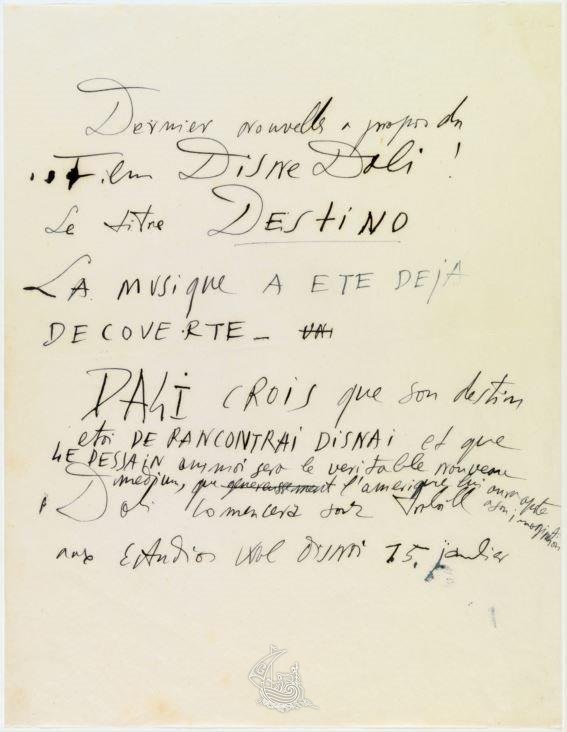 Dernier nouvelle a propos du
Film Disne Dali !
Le titre DEStiNO
LA MUSique A ETE DEjA
DECOUVERTE _
DALI CROIS que son destin
etai DE RANCONTRAI DISNAI et que
LE DESSAIN animai sera le veritable nouveau
medium, que genereusement l'amerique lui aura apte
a son imagination
Dali comencera sont
aux Estudios Wal Disnai 15. janvier